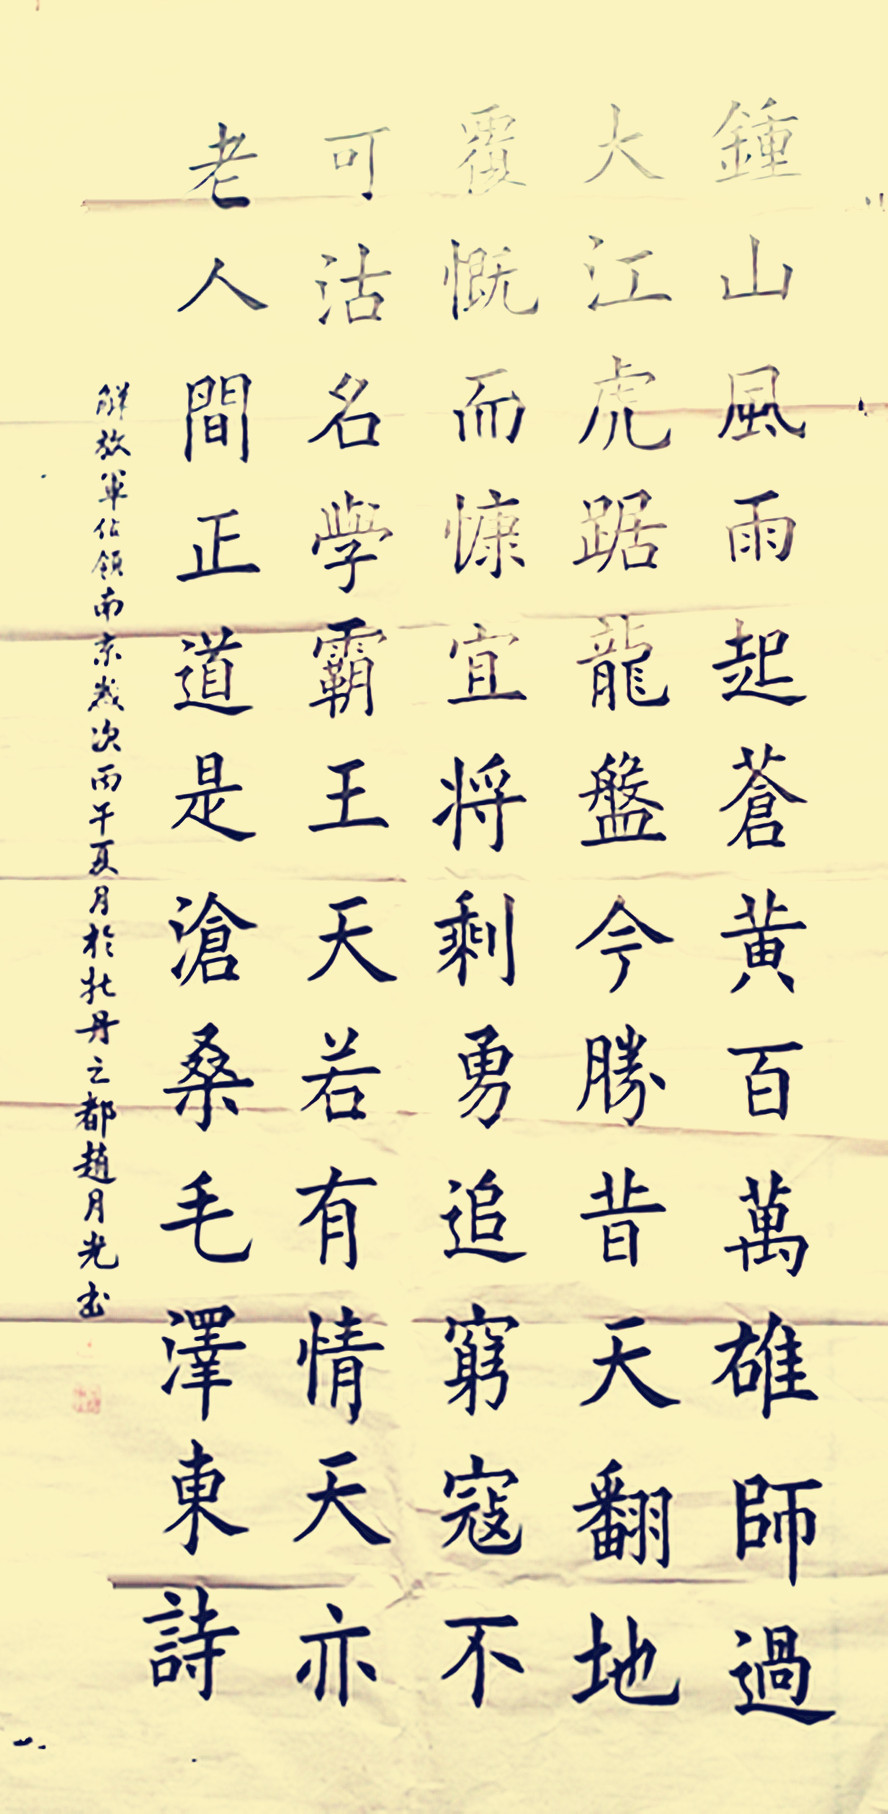 鍾山風雨起蒼黄百萬雄師過
大江虎踞龍盤今勝昔天翻地
覆慨而慷宜将剩勇追窮寇不
可沽名學霸王天若有情天亦
老人間正道是滄桑毛澤東詩
解放軍佔領南京歲次丙午夏月於牡丹之都趙月光书